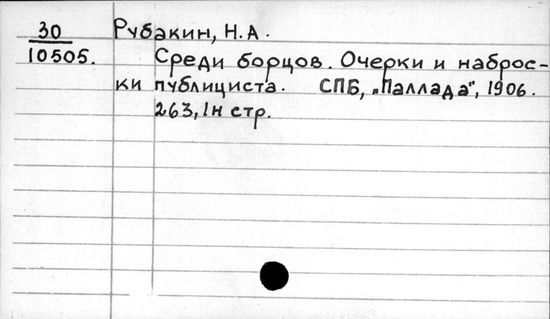 30 Рубакин, Н.А.
10505. Среди борцов. Очерки и наброс-
ки публициста. СПБ, „Паллада", 1906.
263, 1н стр.